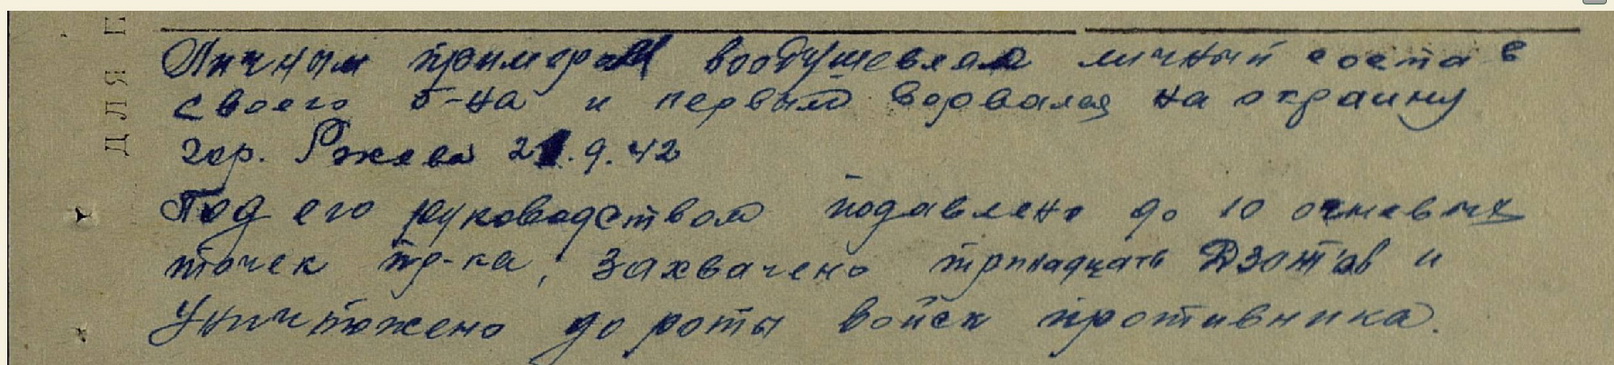 Личным примером воодушевлял личный состав
своего б-на и первым ворвался на окраину
гор. Ржева 21.9.42
Под его руководством подавлено до 10 огневых
точек пр-ка, захвачено тринадцать Дзотов и
Уничтожено до роты войск противника.
ДЛЯ